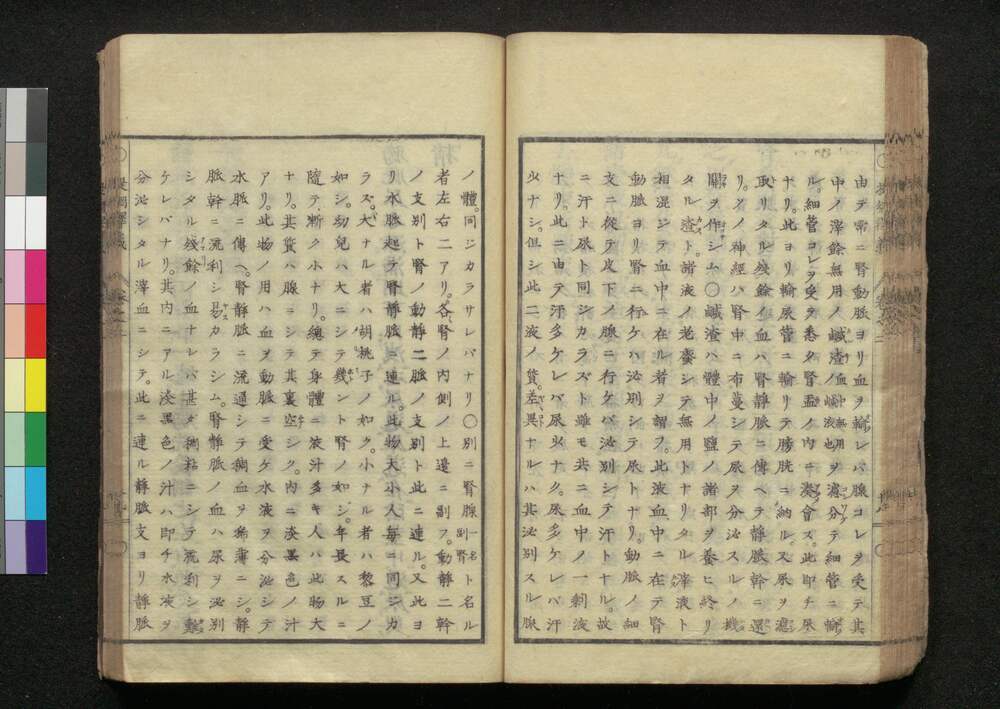 由テ常ニ腎動脈ヨリ血ヲ輸レバ腺コレヲ受テ其
中ノ滓餘無用ノ鹹渣血中無用ノ鹹液也ヲ濾分テ細管ニ輸
ル。細管コレヲ受テ悉ク腎盂ノ内ニ湊會ス。此即チ尿
ナリ。此ヨリ輸尿管ニ輸リテ膀胱ニ納ル。又尿ヲ濾
取リタル殘餘ノ血ハ腎靜脈ニ傳ヘテ靜脈幹ニ還
リ。ソノ神經ハ腎中ニ布蔓シテ尿ヲ分泌スルノ機
關ヲ作シム〇鹹渣ハ體中ノ鹽ノ諸部ヲ養ヒ終リ
タル渣ト。諸液ノ老廢シテ無用トナリタル滓液ト
相混ジテ血中ニ在ル者ヲ謂フ。此液血中ニ在テ腎
動脈ヨリ腎ニ行ケハ泌別シテ尿トナリ。動脈ノ細
支ニ從テ皮下ノ腺ニ行ケバ泌別シテ汗トナル。故
ニ汗ト尿ト同シカラズト雖モ共ニ血中ノ一剰液
ナリ。此ニ由テ汗多ケレバ尿少ナク。尿多ケレバ汗
少ナシ。但シ此二液ノ質。差異ナルハ其泌別スル腺
ノ體。同ジカラサレバナリ〇別ニ腎腺一名副腎ト名ル
者左右二アリ。各腎ノ内側ノ上邉ニ副フ。動靜二幹
ノ支別ト腎ノ動靜二脈ノ支別ト此ニ連ル。又此ヨ
リ水脈起テ腎靜脈ニ連ル。此物大小人毎ニ同ジカ
ラス。大ナル者ハ胡桃子ノ如ク。小ナル者ハ黎豆ノ
如シ。幼兒ハ大ニシテ幾ント腎ノ如シ。年長スルニ
隨テ漸ク小ナリ。總テ身體ニ液汁多キ人ハ此物大
ナリ。其質ハ腺ニシテ其裏空シク。内ニ淡黒色ノ汁
アリ。此物ノ用ハ血ヲ動脈ニ受ケ水液ヲ分泌シテ
水脈ニ傳ヘ。腎靜脈ニ流通シテ稠血ヲ稀薄ニシ。靜
脈幹ニ流利シ易カラシム。腎靜脈ノ血ハ尿ヲ泌別
シタル殘餘ノ血ナレバ甚タ稠粘ニシテ流利シ難
ケレバナリ。其内ニアル淡黒色ノ汁ハ即チ水液ヲ
分泌シタル滓血ニシテ。此ニ連ル靜脈支ヨリ靜脈